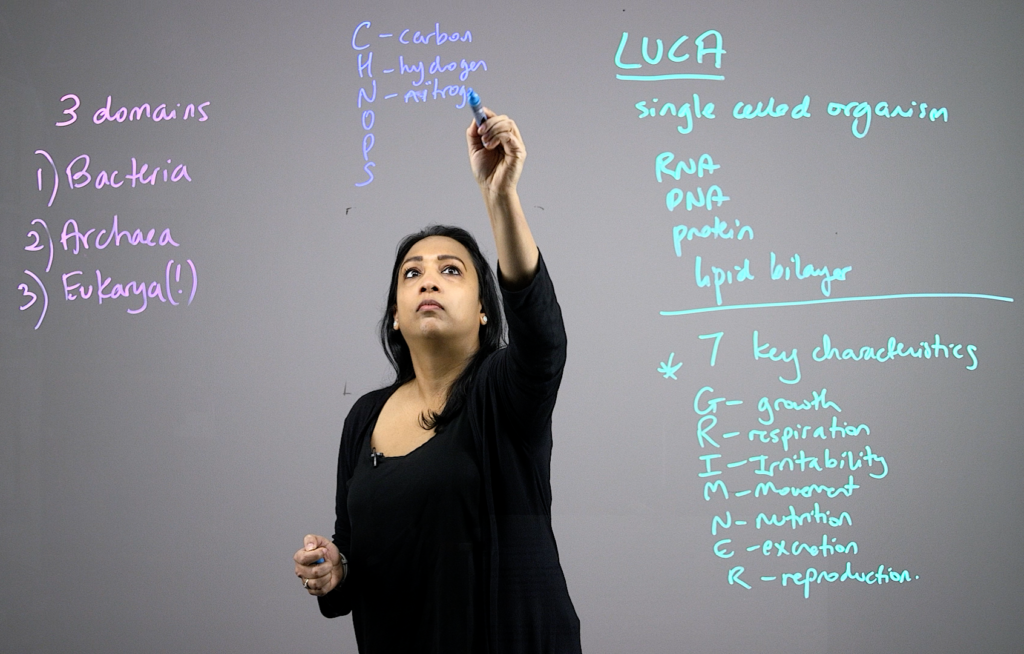 3 domains
1) Bacteria
2) Archaea
3) Eukarya(!)
C - carbon
H - hydrogen
N - nitrog
O
P
S
LUCA
single celled organism
RNA
DNA
protein
lipid bilayer
* 7 key characteristics
G - growth
R - respiration
I - Irritability
M - Movement
N - nutrition
E - excretion
R - reproduction.